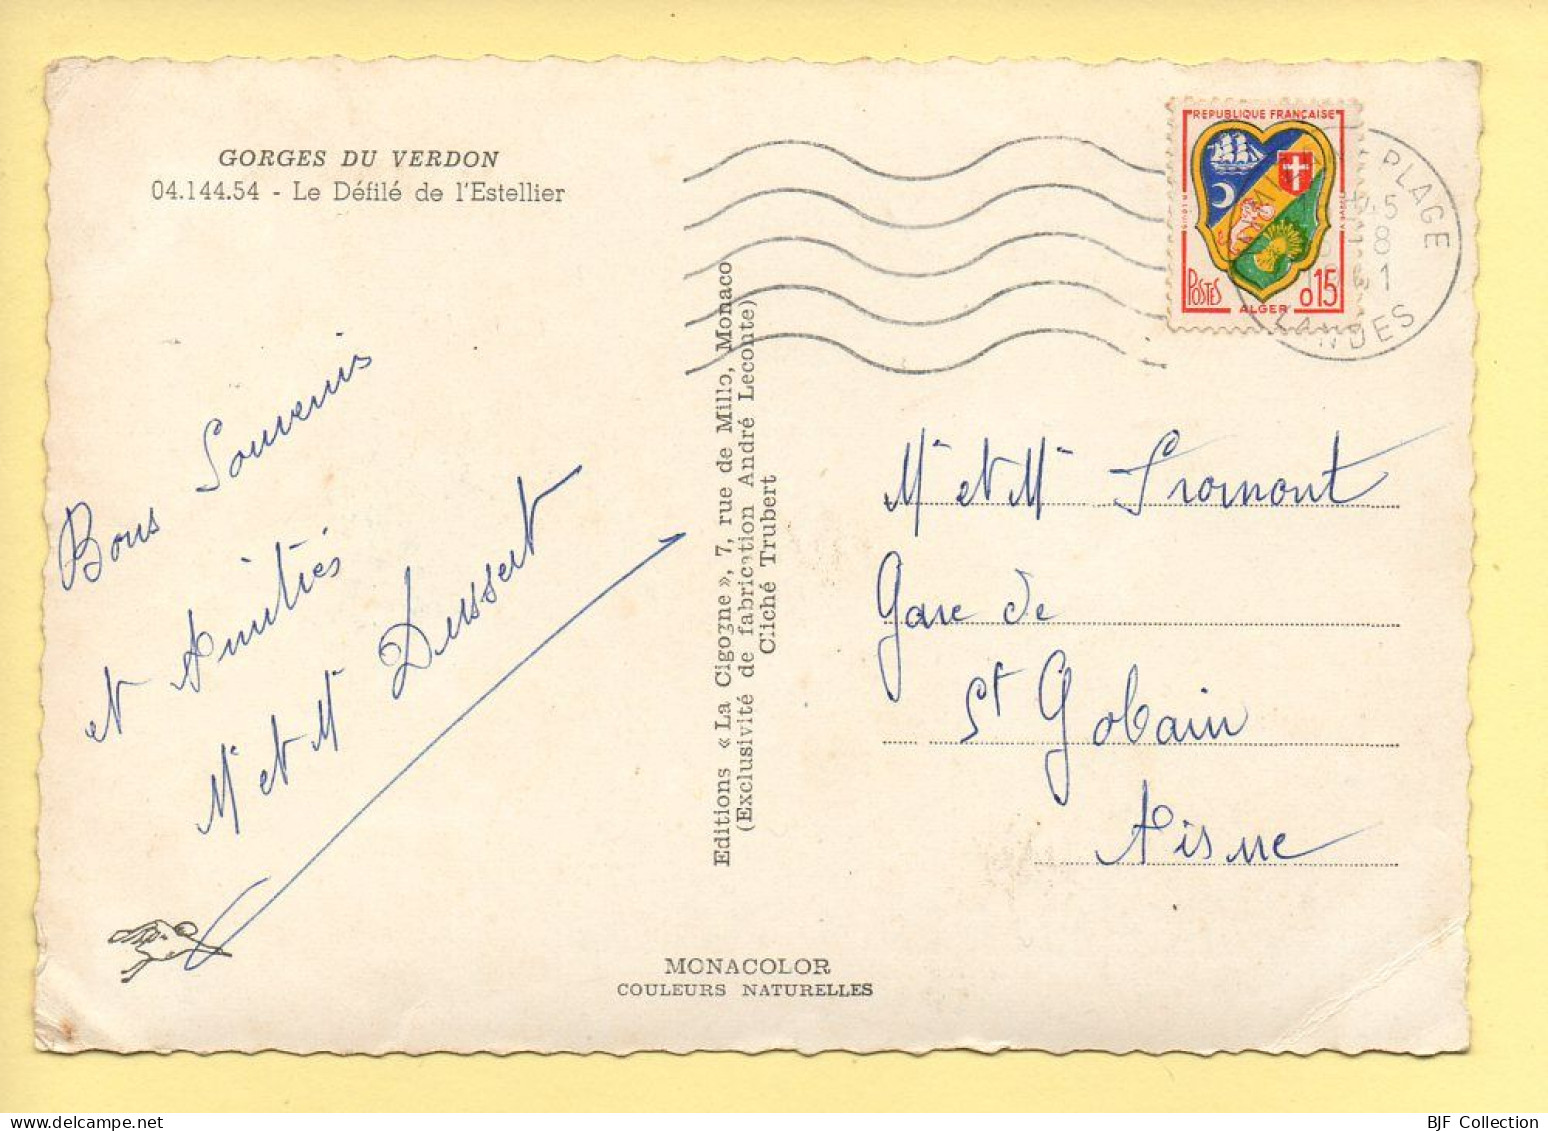 GORGES DU VERDON
04.144.54 - Le Défilé de l'Estellier
Bons Souvenirs
et Amitiés
Mr et Me Dussert
Editions « La Cigogne », 7, rue de Millo, Monaco
(Exclusivité de fabrication André Leconte)
Cliché Trubert
MONACOLOR
COULEURS NATURELLES
REPUBLIQUE FRANÇAISE
POSTES
0,15
ALGER
PLAGE
45
8
1
LANDES
Mr et Me Fromont
Gare de
St Gobain
Aisne
BJF Collection